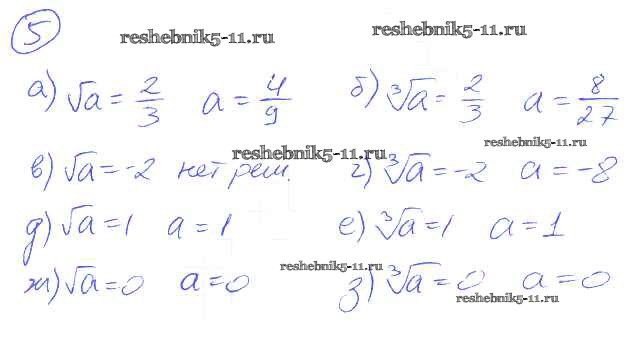 5
reshebnik5-11.ru reshebnik5-11.ru
а) √a = 2/3 a = 4/9 б) ∛a = 2/3 a = 8/27
reshebnik5-11.ru
reshebnik5-11.ru
в) √a = -2 нет реш. г) ∛a = -2 a = -8
д) √a = 1 a = 1 е) ∛a = 1 a = 1
reshebnik5-11.ru
ж) √a = 0 a = 0 з) ∛a = 0 a = 0
reshebnik5-11.ru